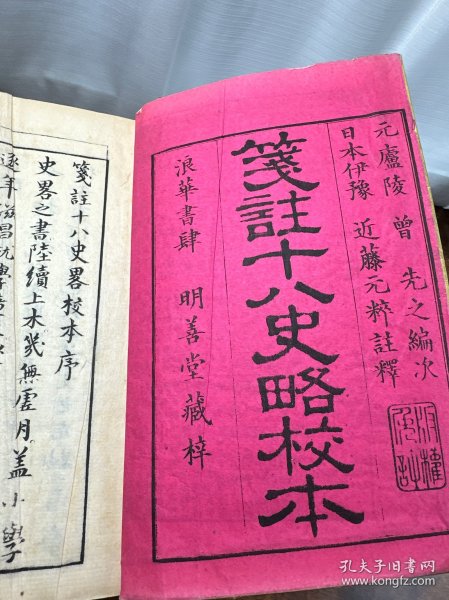 元廬陵 曾 先之編次
日本伊豫 近藤元粹註釋
箋註十八史略校本
浪華書肆 明善堂藏梓
箋註十八史畧校本序
史畧之書陸續上木幾無虛月盖小學
孔夫子旧书网
www.kongfz.com